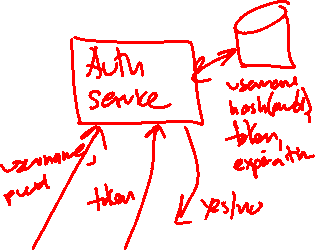 Auth
service
username
hash(pwd)
token,
expiration
username,
pwd
token
yes/no